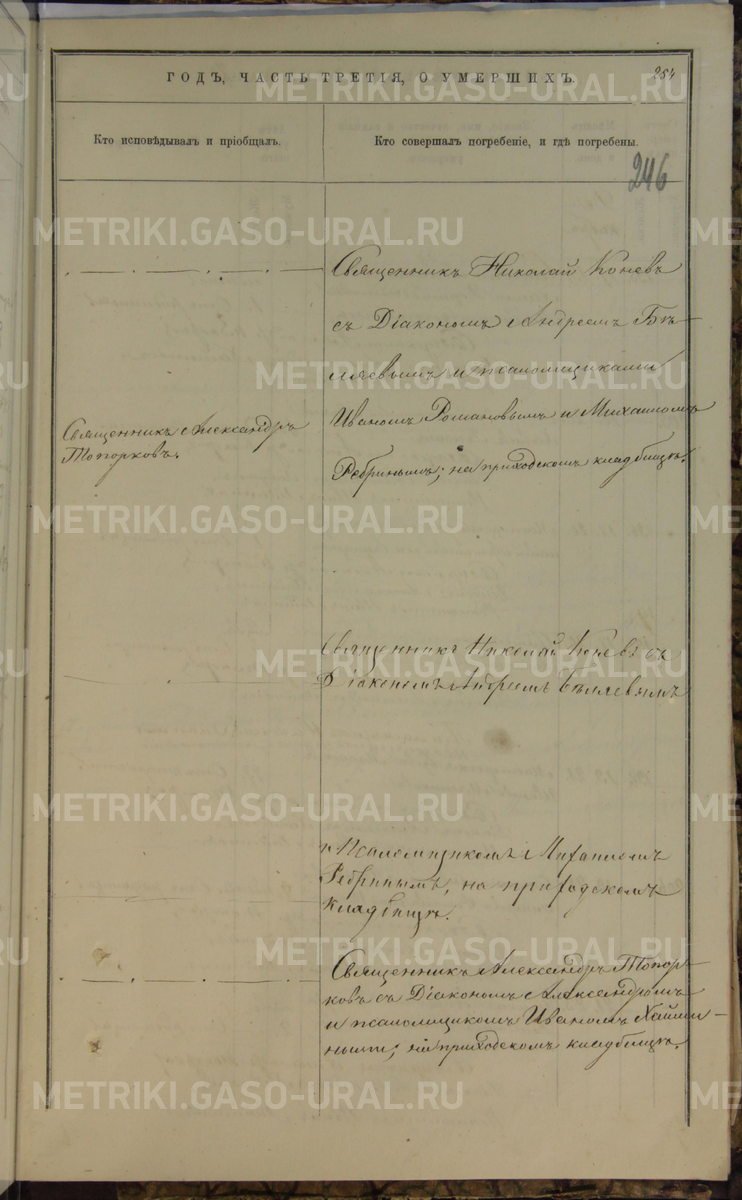 ГОДЪ, ЧАСТЬ ТРЕТІЯ, О УМЕРШИХЪ.
254
Кто исповѣдывалъ и пріобщалъ.
Кто совершалъ погребеніе, и гдѣ погребены.
246
Священникъ Николай Коневъ
съ Діакономъ Андреемъ Бѣ-
ляевымъ и псаломщиками
Иваномъ Романовымъ и Михаиломъ
Ребринымъ; на приходскомъ кладбищѣ.
Священникъ Александръ
Топорковъ.
Священникъ Николай Коневъ съ
Діакономъ Андреемъ Бѣляевымъ
и Псаломщикомъ Михаиломъ
Ребринымъ, на приходскомъ
кладбищѣ.
Священникъ Александръ Топор-
ковъ съ Діакономъ Александромъ
и псаломщикомъ Иваномъ
на приходскомъ кладбищѣ.
METRIKI.GASO-URAL.RU